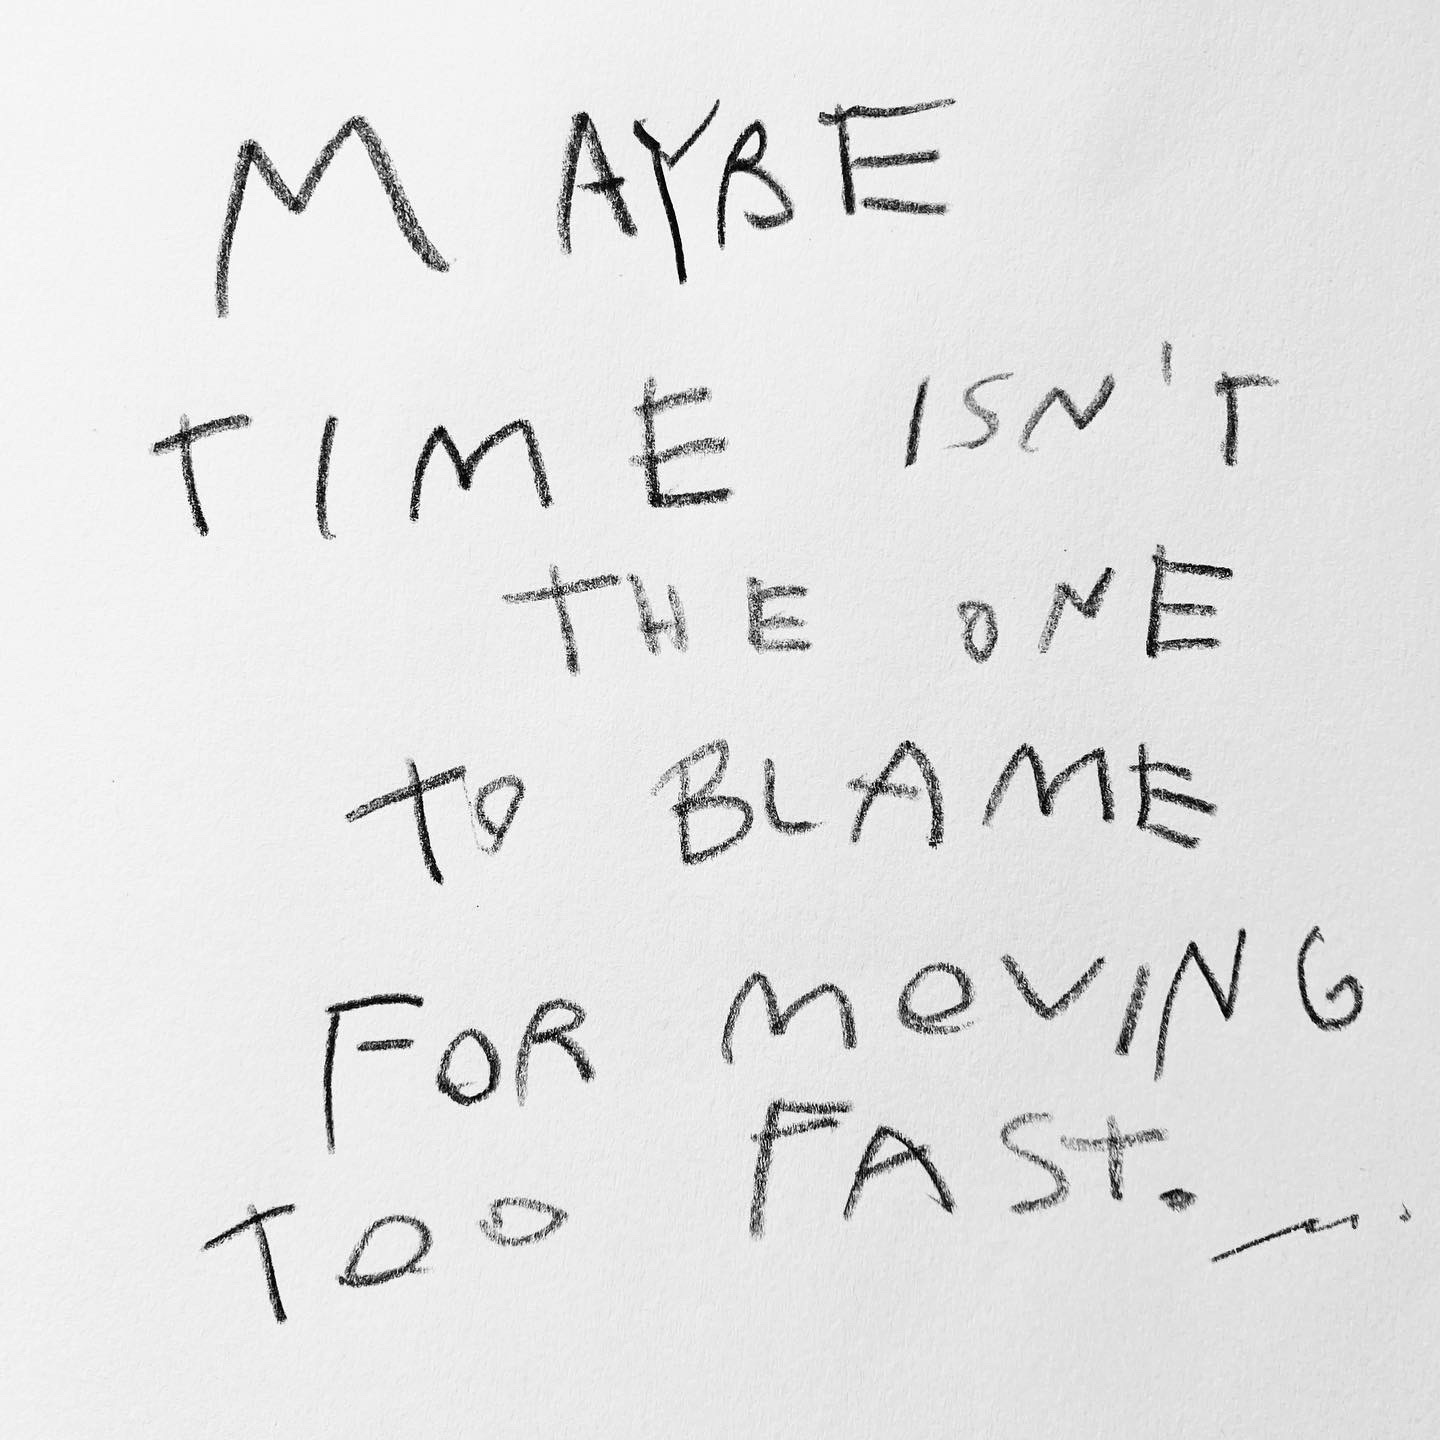 MAYBE
TIME ISN'T
THE ONE
TO BLAME
FOR MOVING
TOO FAST.